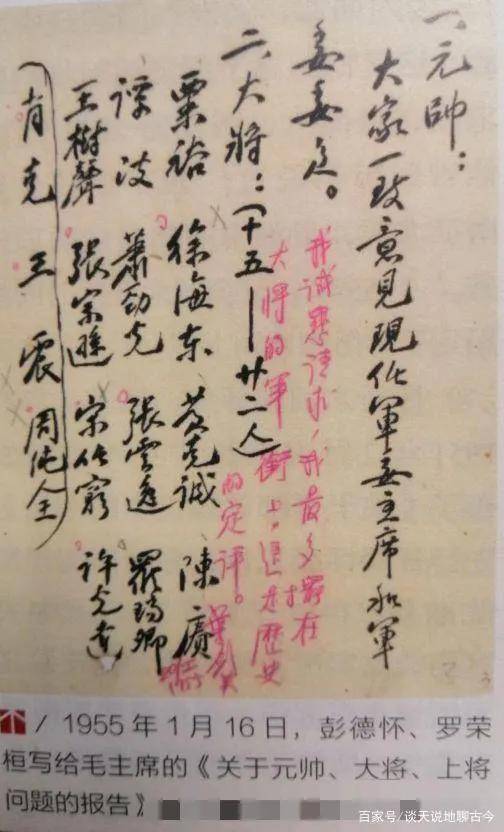 一、元帥：
大家一致意見現任軍委主席和軍
委委員。
我诚恳请求，我最多
大将的軍衡上，進歷史
的定评。
二、大將：(十五——廿二人)
粟裕 徐海东 黄克誠 陳賡
譚政 蕭勁光 張雲逸 羅瑞卿
王樹聲 張宗遜 宋任窮 許光達
(肖克 王震 周純全)
/ 1955年1月16日，彭德怀、罗荣
桓写给毛主席的《关于元帅、大将、上将
问题的报告》
百家号/谈天说地聊古今